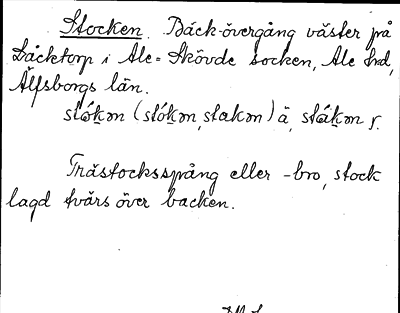 Stocken. Bäck-övergång väster på
Bäcktorp i Ale-Skövde socken, Ale hd,
Älfsborgs län.
stók̥m (stók̥m, stakm) ä, sták̥m y.
Trästocksspång eller -bro, stock
lagd tvärs över bäcken.